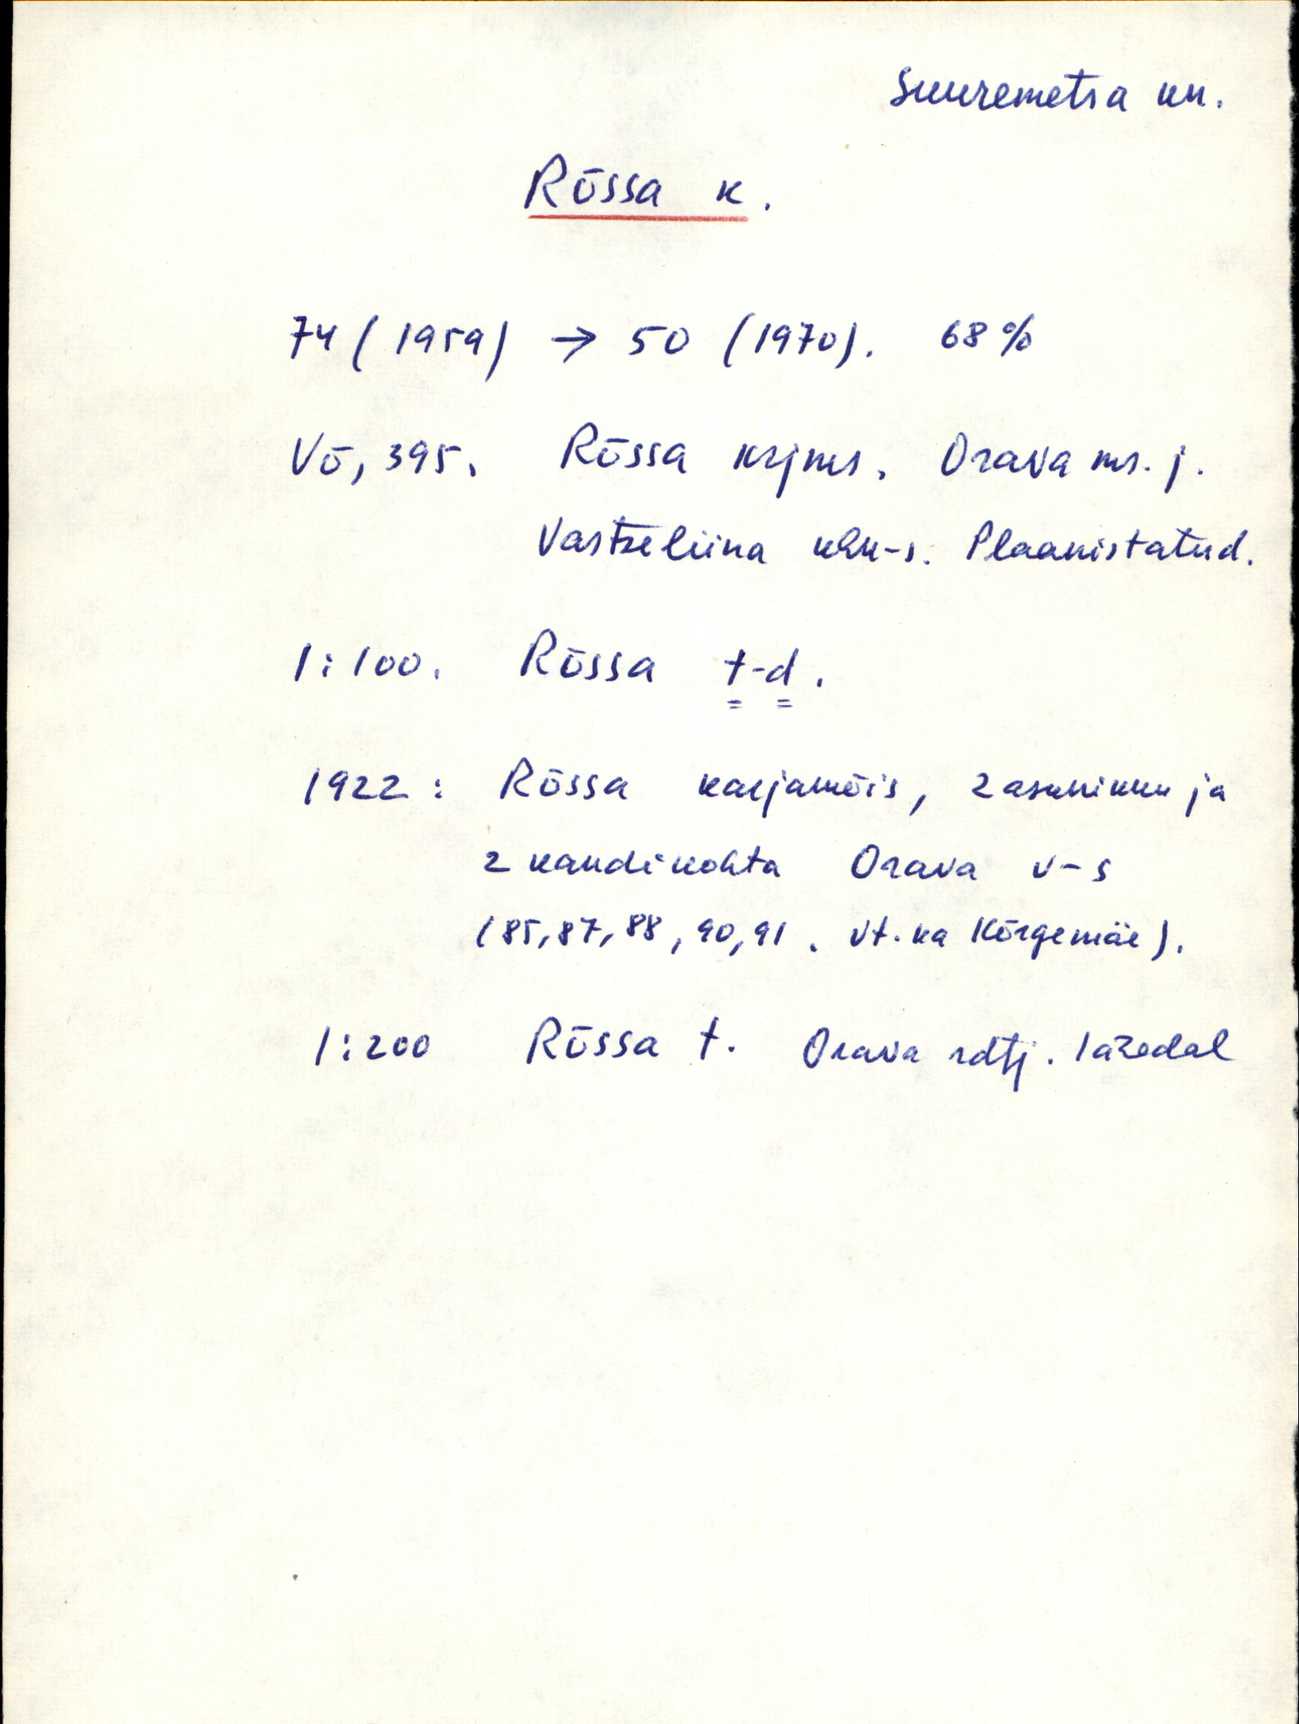 Suuremetsa kn.
Rõssa k.
74 (1959) → 50 (1970). 68%
Võ, 395. Rõssa krjms. Orava ms. j.
Vastseliina khk-s. Plaanistatud.
1:100. Rõssa t-d.
1922: Rõssa karjamõis, 2 asunikku ja
2 kandikohta Orava v-s
(85, 87, 88, 90, 91. vt. ka Kõrgemäe).
1:200 Rõssa t. Orava rdtj. lähedal